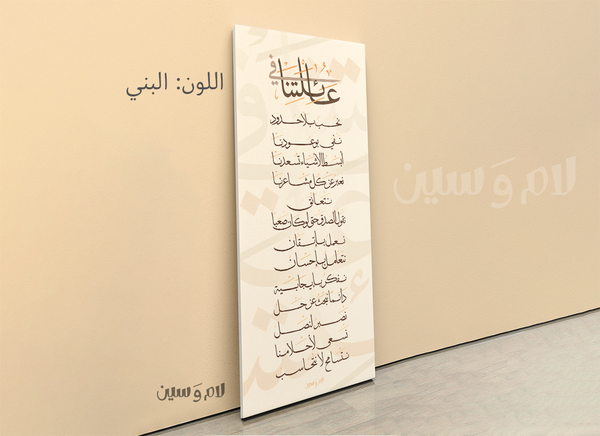 اللون: البني
في عائلتنا
نحب بلا حدود
نفي بوعودنا
أبسط الأشياء تسعدنا
نعبر عن كل مشاعرنا
نتعانق
نقول الصدق حتى لو كان صعبا
نعمل بإتقان
نتعامل بإحسان
نفكر بإيجابية
دائما نبحث عن حل
نصبر لنصل
نسعى لأحلامنا
نتسامح لا نتحاسب
لام و سين
لام و سين